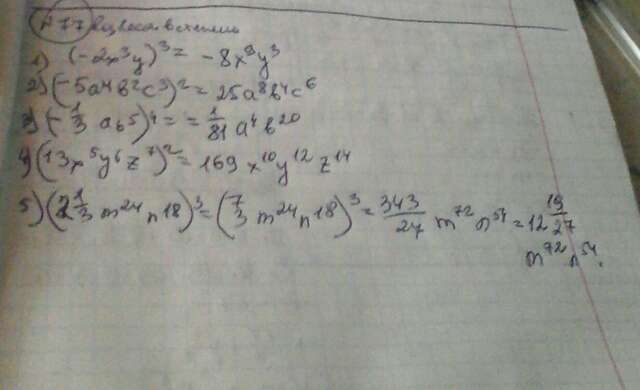 № 77 возвести в степень
1) (-2x³y)³ = -8x⁹y³
2) (-5a⁴b²c³)² = 25a⁸b⁴c⁶
3) (-1/3 ab⁵)⁴ = = 1/81 a⁴b²⁰
4) (13x⁵y⁶z⁷)² = 169x¹⁰y¹²z¹⁴
5) (2 1/3 m²⁴n18)³ = (7/3 m²⁴n18)³ = 343/27 m⁷²n⁵⁴ = 12 19/27
m⁷²n⁵⁴.